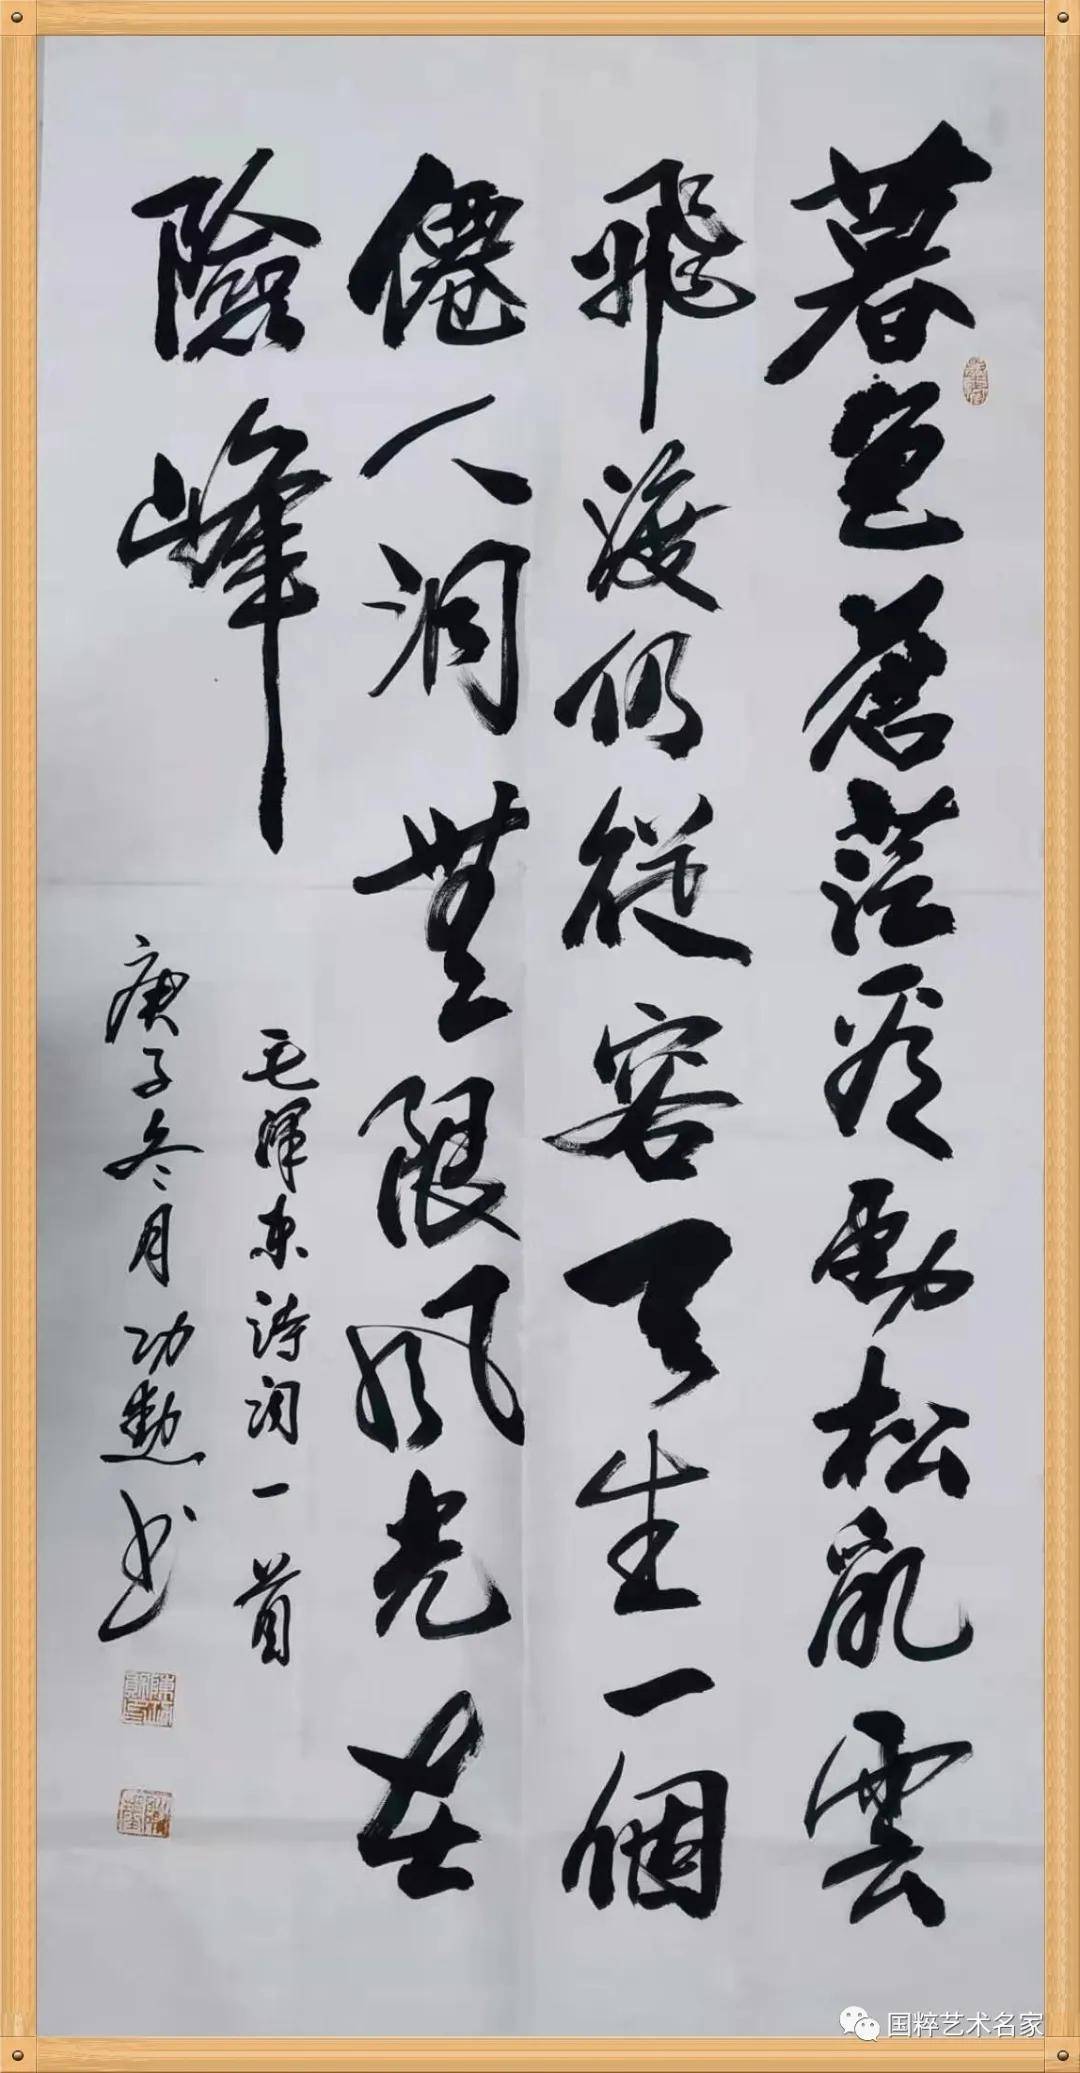 暮色蒼茫看勁松亂雲
飛渡仍從容天生一個
僊人洞無限風光在
險峰
毛澤東詩詞一首
庚子冬月功勲书
国粹艺术名家